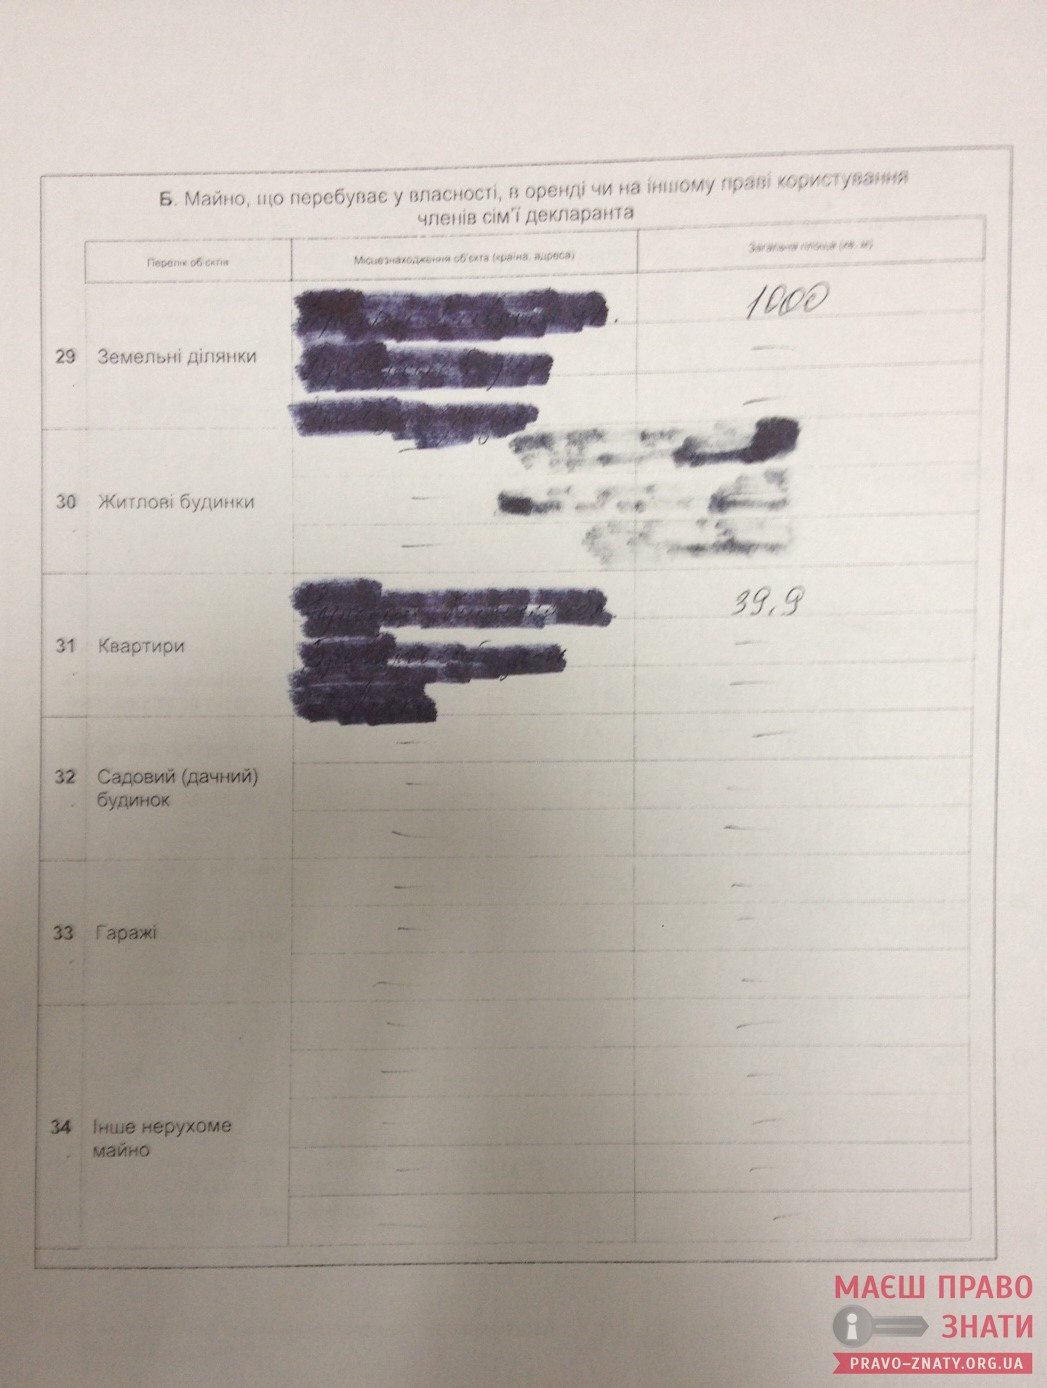 Б. Майно, що перебуває у власності, в оренді чи на іншому праві користування
членів сім'ї декларанта
Перелік об'єктів
Місцезнаходження об'єкта (країна, адреса)
Загальна площа (кв. м)
29 Земельні ділянки
1000
30 Житлові будинки
31 Квартири
39,9
32 Садовий (дачний)
будинок
33 Гаражі
34 Інше нерухоме
майно
МАЄШ ПРАВО
ЗНАТИ
PRAVO-ZNATY.ORG.UA